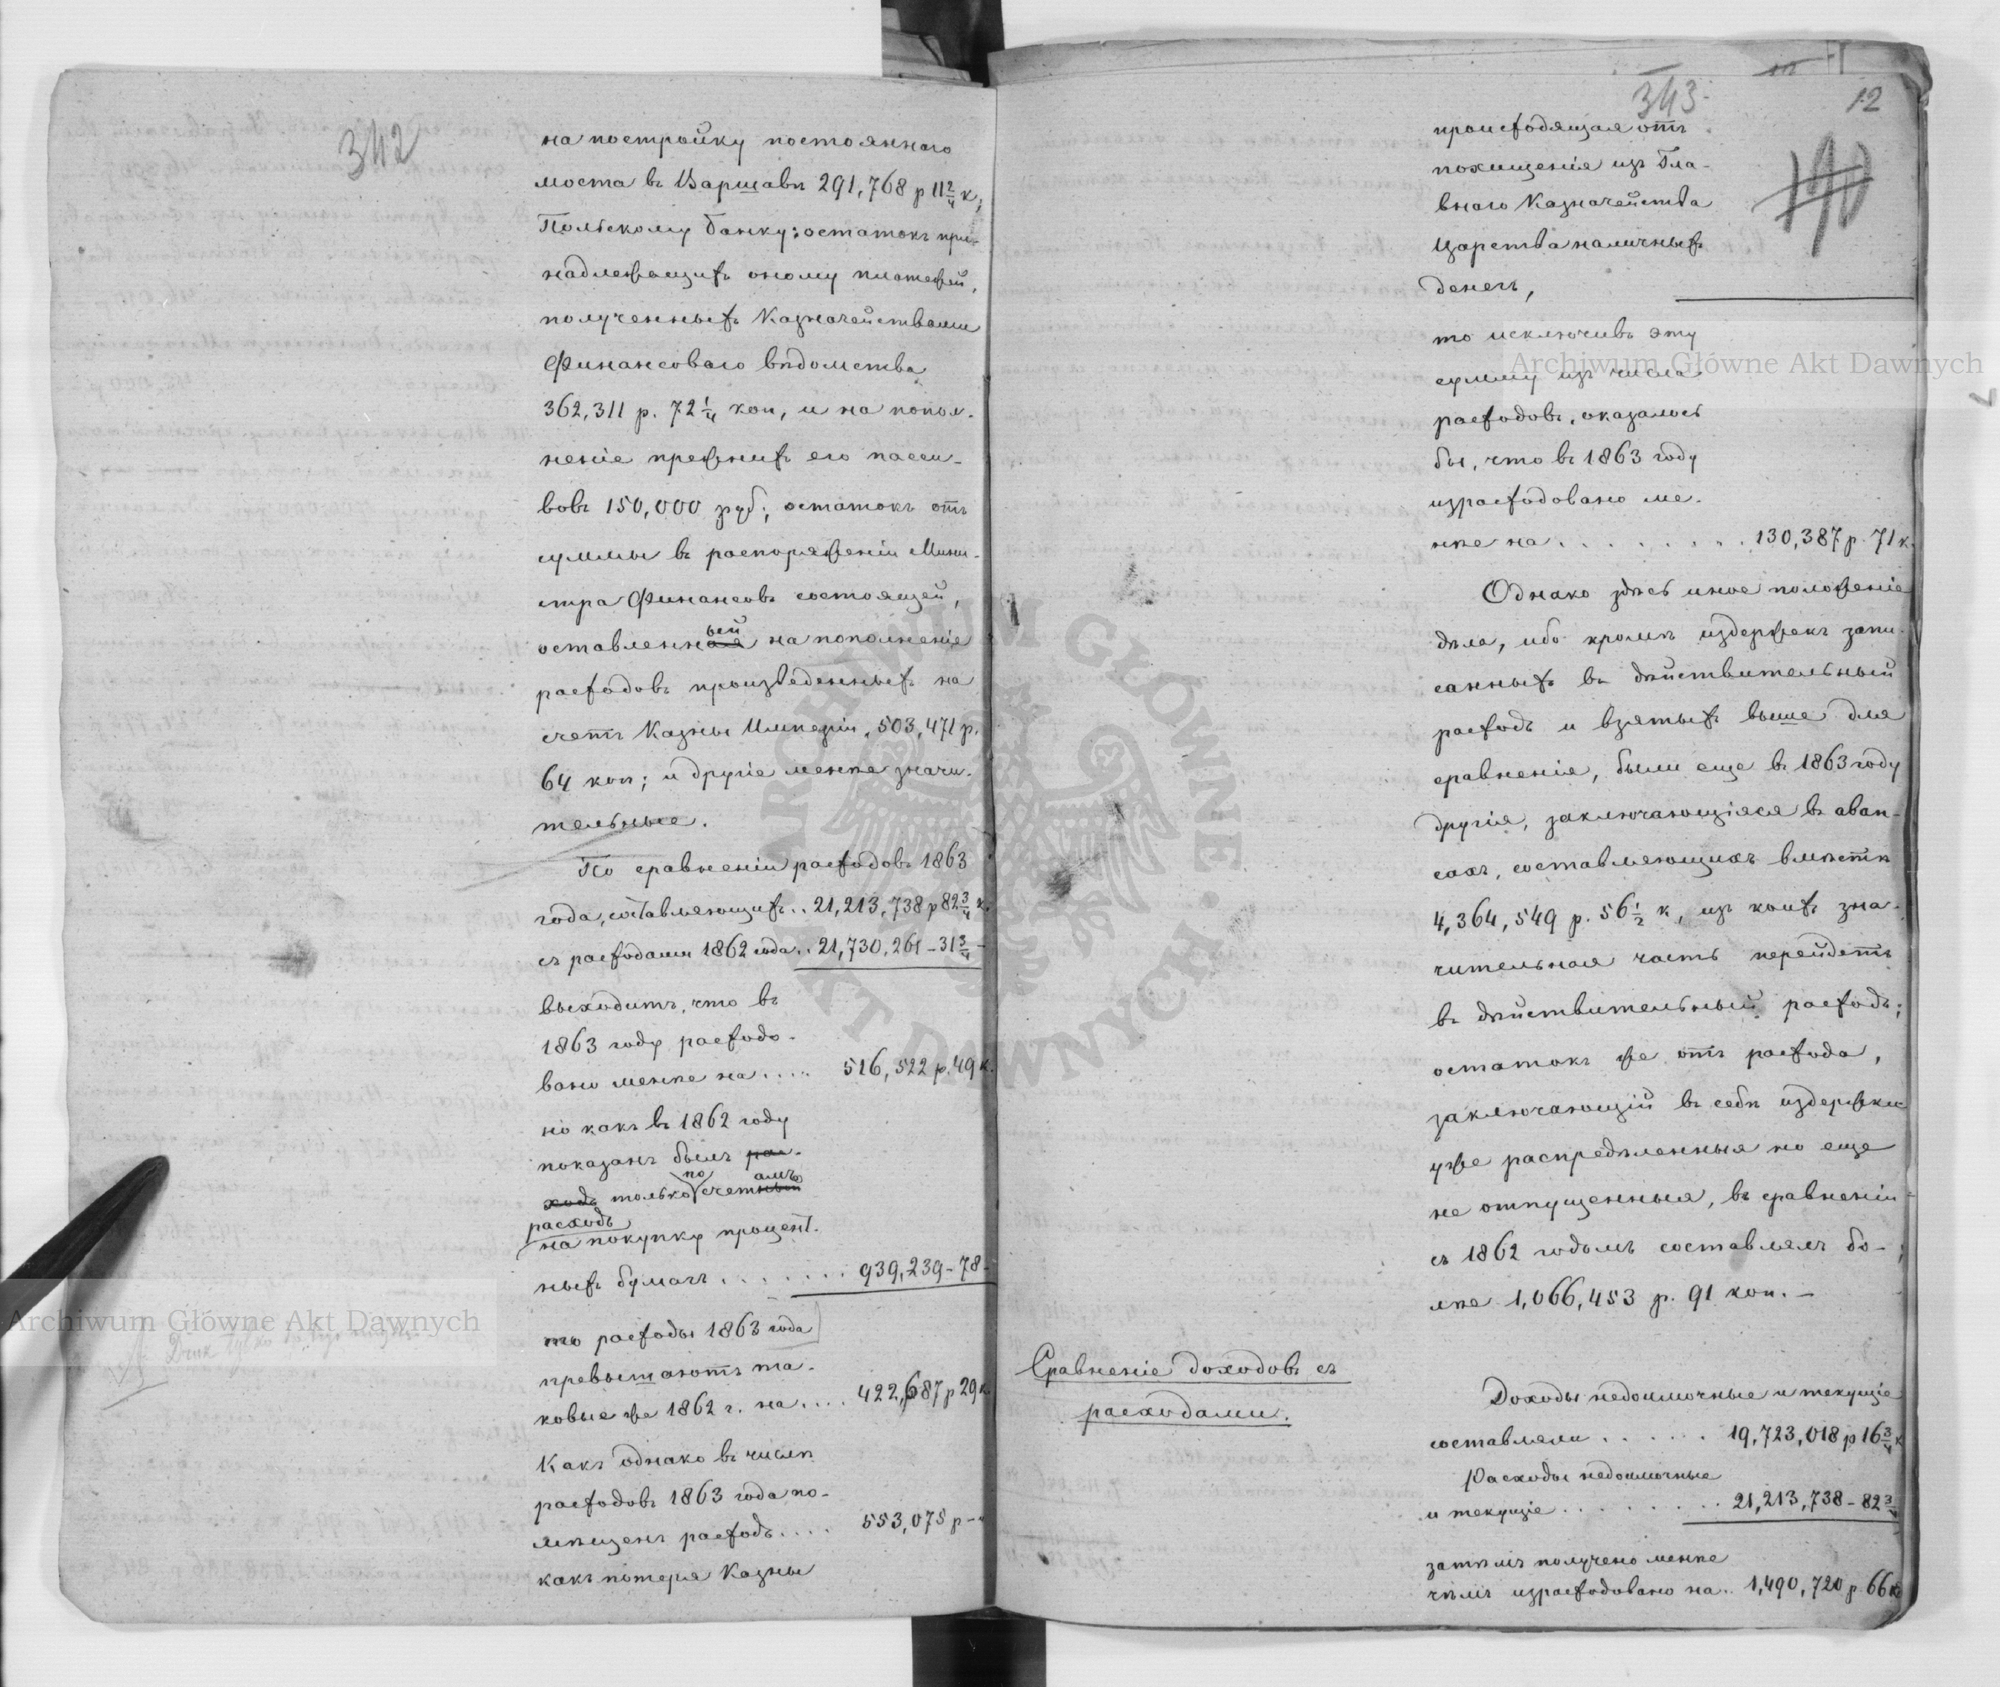 342
на постройку постояннаго
моста въ Варшавѣ 291,768 р 11 2/4 к;
Польскому банку: остатокъ при-
надлежащихъ оному платежей,
полученныхъ Казначействами
Финансоваго вѣдомства
362,311 р. 72 1/4 коп, и на попол-
неніе прежнихъ его пасси-
вовъ 150,000 руб; остатокъ отъ
суммы въ распоряженіи Мини-
стра Финансовъ состоящей,
оставленной на пополненіе
расходовъ произведенныхъ на
счетъ Казны Имперіи, 503,471 р.
64 коп; и другіе менѣе значи-
тельные.
По сравненіи расходовъ 1863
года, составляющихъ.. 21,213,738 р 82 3/4 к.
съ расходами 1862 года.. 21,730,261 – 31 3/4 –
выходитъ, что въ
1863 году расходо-
вано менѣе на..... 516,522 р. 49 к.
но какъ въ 1862 году
показанъ былъ рас-
ходъ только по счетамъ
расходъ
на покупку процент-
ныхъ бумагъ....... 939,239 – 78 –
то расходы 1863 года
превышаютъ та-
ковые же 1862 г. на.... 422,687 р 29 к
Какъ однако въ числѣ
расходовъ 1863 года по-
мѣщенъ расходъ.... 553,075 р – „
какъ потеря Казны
343.
12
190
происходящая отъ
похищенія изъ Гла-
внаго Казначейства
Царства наличныхъ
денегъ,
то исключивъ эту
сумму изъ числа
расходовъ, оказалось
бы, что въ 1863 году
израсходовано ме-
нѣе на........ 130,387 р. 71 к.
Однако здѣсь иное положеніе
дѣла, ибо кромѣ издержекъ запи-
санныхъ въ дѣйствительный
расходъ и взятыхъ выше для
сравненія, были еще въ 1863 году
другія, заключающіяся въ аван-
сахъ, составляющихъ вмѣстѣ
4,364,549 р. 56 1/2 к, изъ коихъ зна-
чительная часть перейдетъ
въ дѣйствительный расходъ;
остатокъ же отъ расхода,
заключающій въ себѣ издержки
уже распредѣленныя но еще
не отпущенныя, въ сравненіи
съ 1862 годомъ составлялъ бо-
лѣе 1,066,453 р. 91 коп. –
Сравненіе доходовъ съ
расходами.
Доходы недоимочные и текущіе
составляли...... 19,723,018 р 16 3/4 к
Расходы недоимочные
и текущіе......... 21,213,738 – 82 3/4
затѣмъ получено менѣе
чѣмъ израсходовано на.. 1,490,720 р. 66 к
Archiwum Główne Akt Dawnych
Archiwum Główne Akt Dawnych
ARCHIWUM GŁÓWNE AKT DAWNYCH